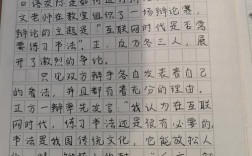 语文老师在教室组织了一场辩论赛，
辩论的主题是"互联网时代是否需
要练习书法"正、反方各三人，展
开了激烈的争论。
只见双方辩手各自发表着自己
的看法，并且都有着充分的理由。
正方一辩率先发言："我认为在互联
网时代，练习书法还是很有必要的，
书法是我国传统文化，它能放松人